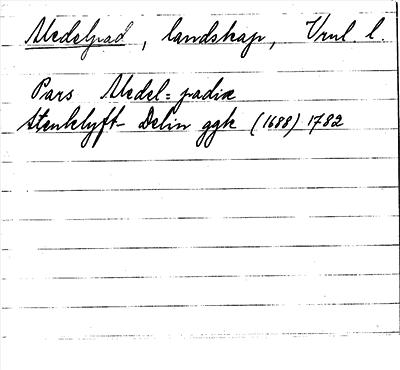 Medelpad, landskap, Vrnl. l.
Pars Medel=padiæ
Stenklyft Delin ggk (1688) 1782